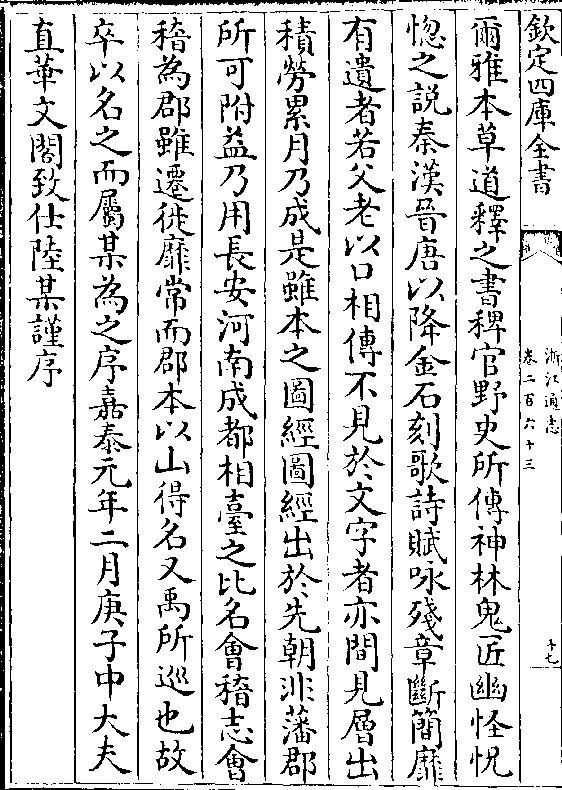 欽定四庫全書
浙江通志
卷二百六十三
十七
爾雅本草道釋之書稗官野史所傳神林鬼匠幽怪怳
惚之說秦漢晉唐以降金石刻歌詩賦咏殘章斷簡靡
有遺者若父老以口相傳不見於文字者亦間見層出
積勞累月乃成是雖本之圖經圖經出於先朝非藩郡
所可附益乃用長安河南成都相臺之比名會稽志會
稽為郡雖遷徙靡常而郡本以山得名又禹所巡也故
卒以名之而屬某為之序嘉泰元年二月庚子中大夫
直華文閣致仕陸某謹序